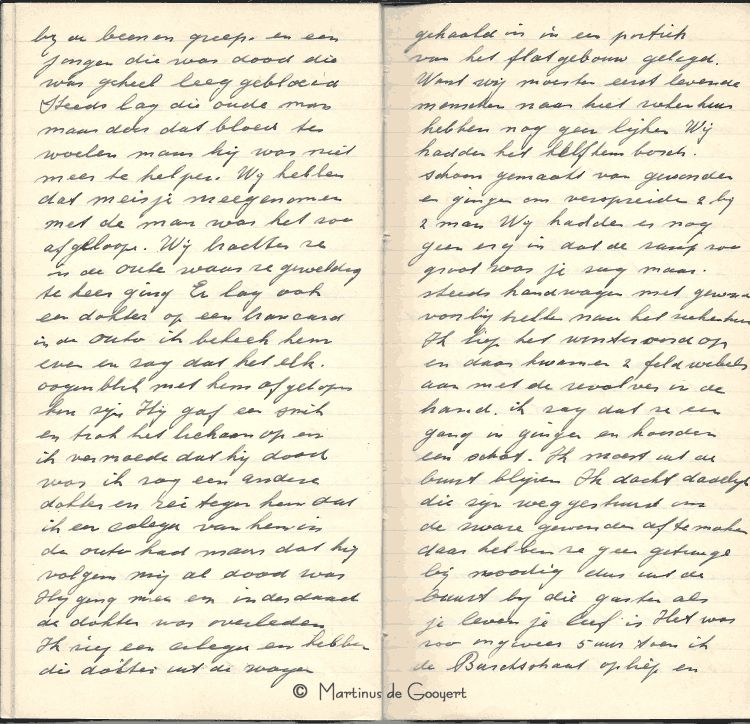 by de beenen greep. en een
jongen die was dood die
was geheel leeggebloeid
Steeds lag die oude man
maar door dat bloed te
woelen maar hij was niet
meer te helpen. Wij hebben
dat meisje meegenomen
met de man was het zoo
afgeloopen. Wij brachten ze
in de auto waar ze geweldig
te keer ging Er lag ook
een dokter op een brancard
in de auto ik bekeek hem
even en zag dat het elk.
oogenblik met hem afgeloopen
kon zijn Hij gaf een snik
en trok het lichaam op en
ik vermoede dat hij dood
was ik zag een andere
dokter en zei tegen hem dat
ik een colega van hem in
de auto had maar dat hij
volgens mij al dood was
Hij ging mee en inderdaad
de dokter was overleden
Ik riep een colega en hebben
die dokter uit de wagen
gehaald en in een portiek
van het flatgebouw gelegd.
Want wij moesten eerst levende
menschen naar het ziekenhuis
hebben nog geen lijken Wij
hadden het
schoon gemaakt van gewonden
en gingen ons verspreiden 2 bij
2 man Wij hadden er nog
geen erg in dat de ramp zoo
groot was je zag maar.
steeds handwagen met gewonden
voorbij trekken naar het ziekenhuis
Ik liep het op
en daar kwamen 2 feldwebels
aan met de revolver in de
hand. ik zag dat ze een
gang in gingen en hoorden
een schot. Ik moest uit de
buurt blijven Ik dacht dadelijk
die zijn weggestuurd om
de zware gewonden af te maken
daar hebben ze geen getuige
bij noodig dus uit de
buurt bij die gasten als
je leven je lief is Het was
zoo ongeveer 5 uur toen ik
de opliep en
© Martinus de Gooyert